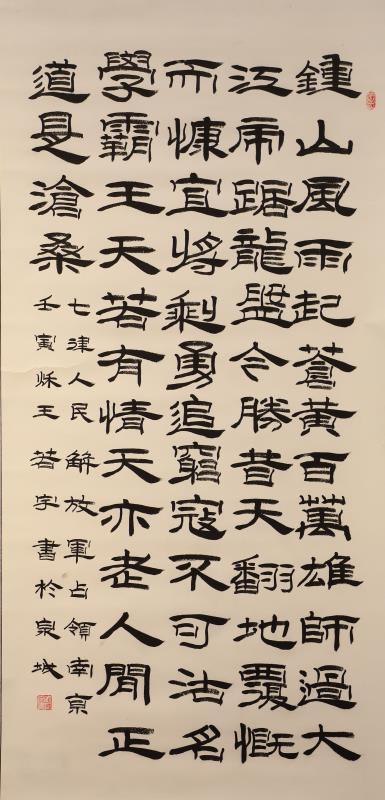 鍾山風雨起蒼黃百萬雄師過大
江虎踞龍盤今勝昔天翻地覆慨
而慷宜將剩勇追窮寇不可沽名
學霸王天若有情天亦老人間正
道是滄桑
七律人民解放軍占領南京
壬寅秌王若宇書於泉城